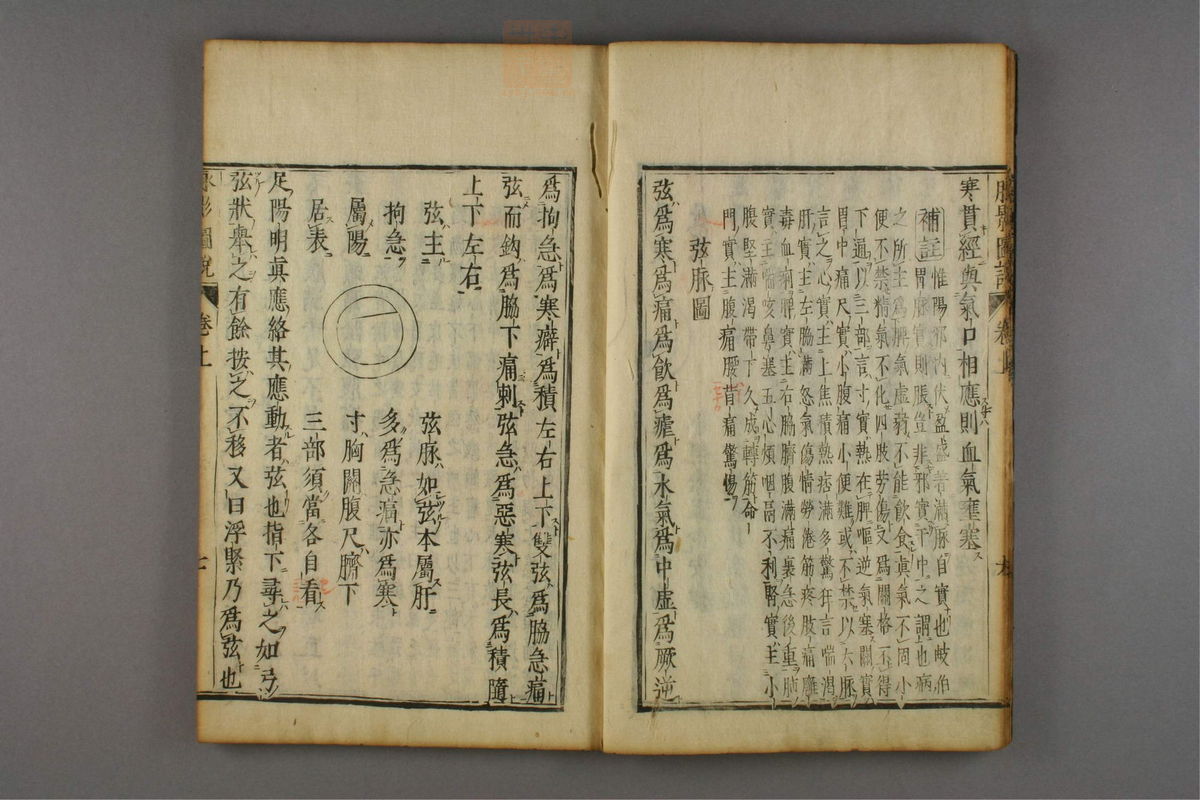 寒貫經與氣口相應則血氣壅塞
補註
之所主爲脾氣虛弱不能飲食眞氣不固小
便不禁精氣不化四肢勞傷又爲關格不得
下遍以三部言寸實熱在脾嘔逆氣塞關實
胃中痛尺實小腹痛小便難或不禁以六脉
言之心實主上焦積熱痞滿多驚狂言喘渴
肝實主左脇滿怒氣傷情勞倦筋疼肢痛癰
毒血痢脾實主右脇臍腹滿痛裏急後重肺
實主喘咳鼻塞五心煩咽鬲不利腎實主小
腹堅滿渴帶下久成轉筋命
門實主腹痛腰背痛驚惕
弦脉圖
弦爲寒爲痛爲飲爲瘧爲水氣爲中虛爲厥逆
爲拘急爲寒癖爲積左右上下雙弦爲脇急痛
弦而鈎爲脇下痛刺弦急爲惡寒弦長爲積隨
上下左右
弦主
拘急
屬陽
居表
弦脉如弦本屬肝
多爲急痛亦爲寒
寸胸關腹尺臍下
三部須當各自看
足陽明眞應絡其應動者弦也指下尋之如弓
弦狀舉之有餘按之不移又曰浮緊乃爲弦也
卷上